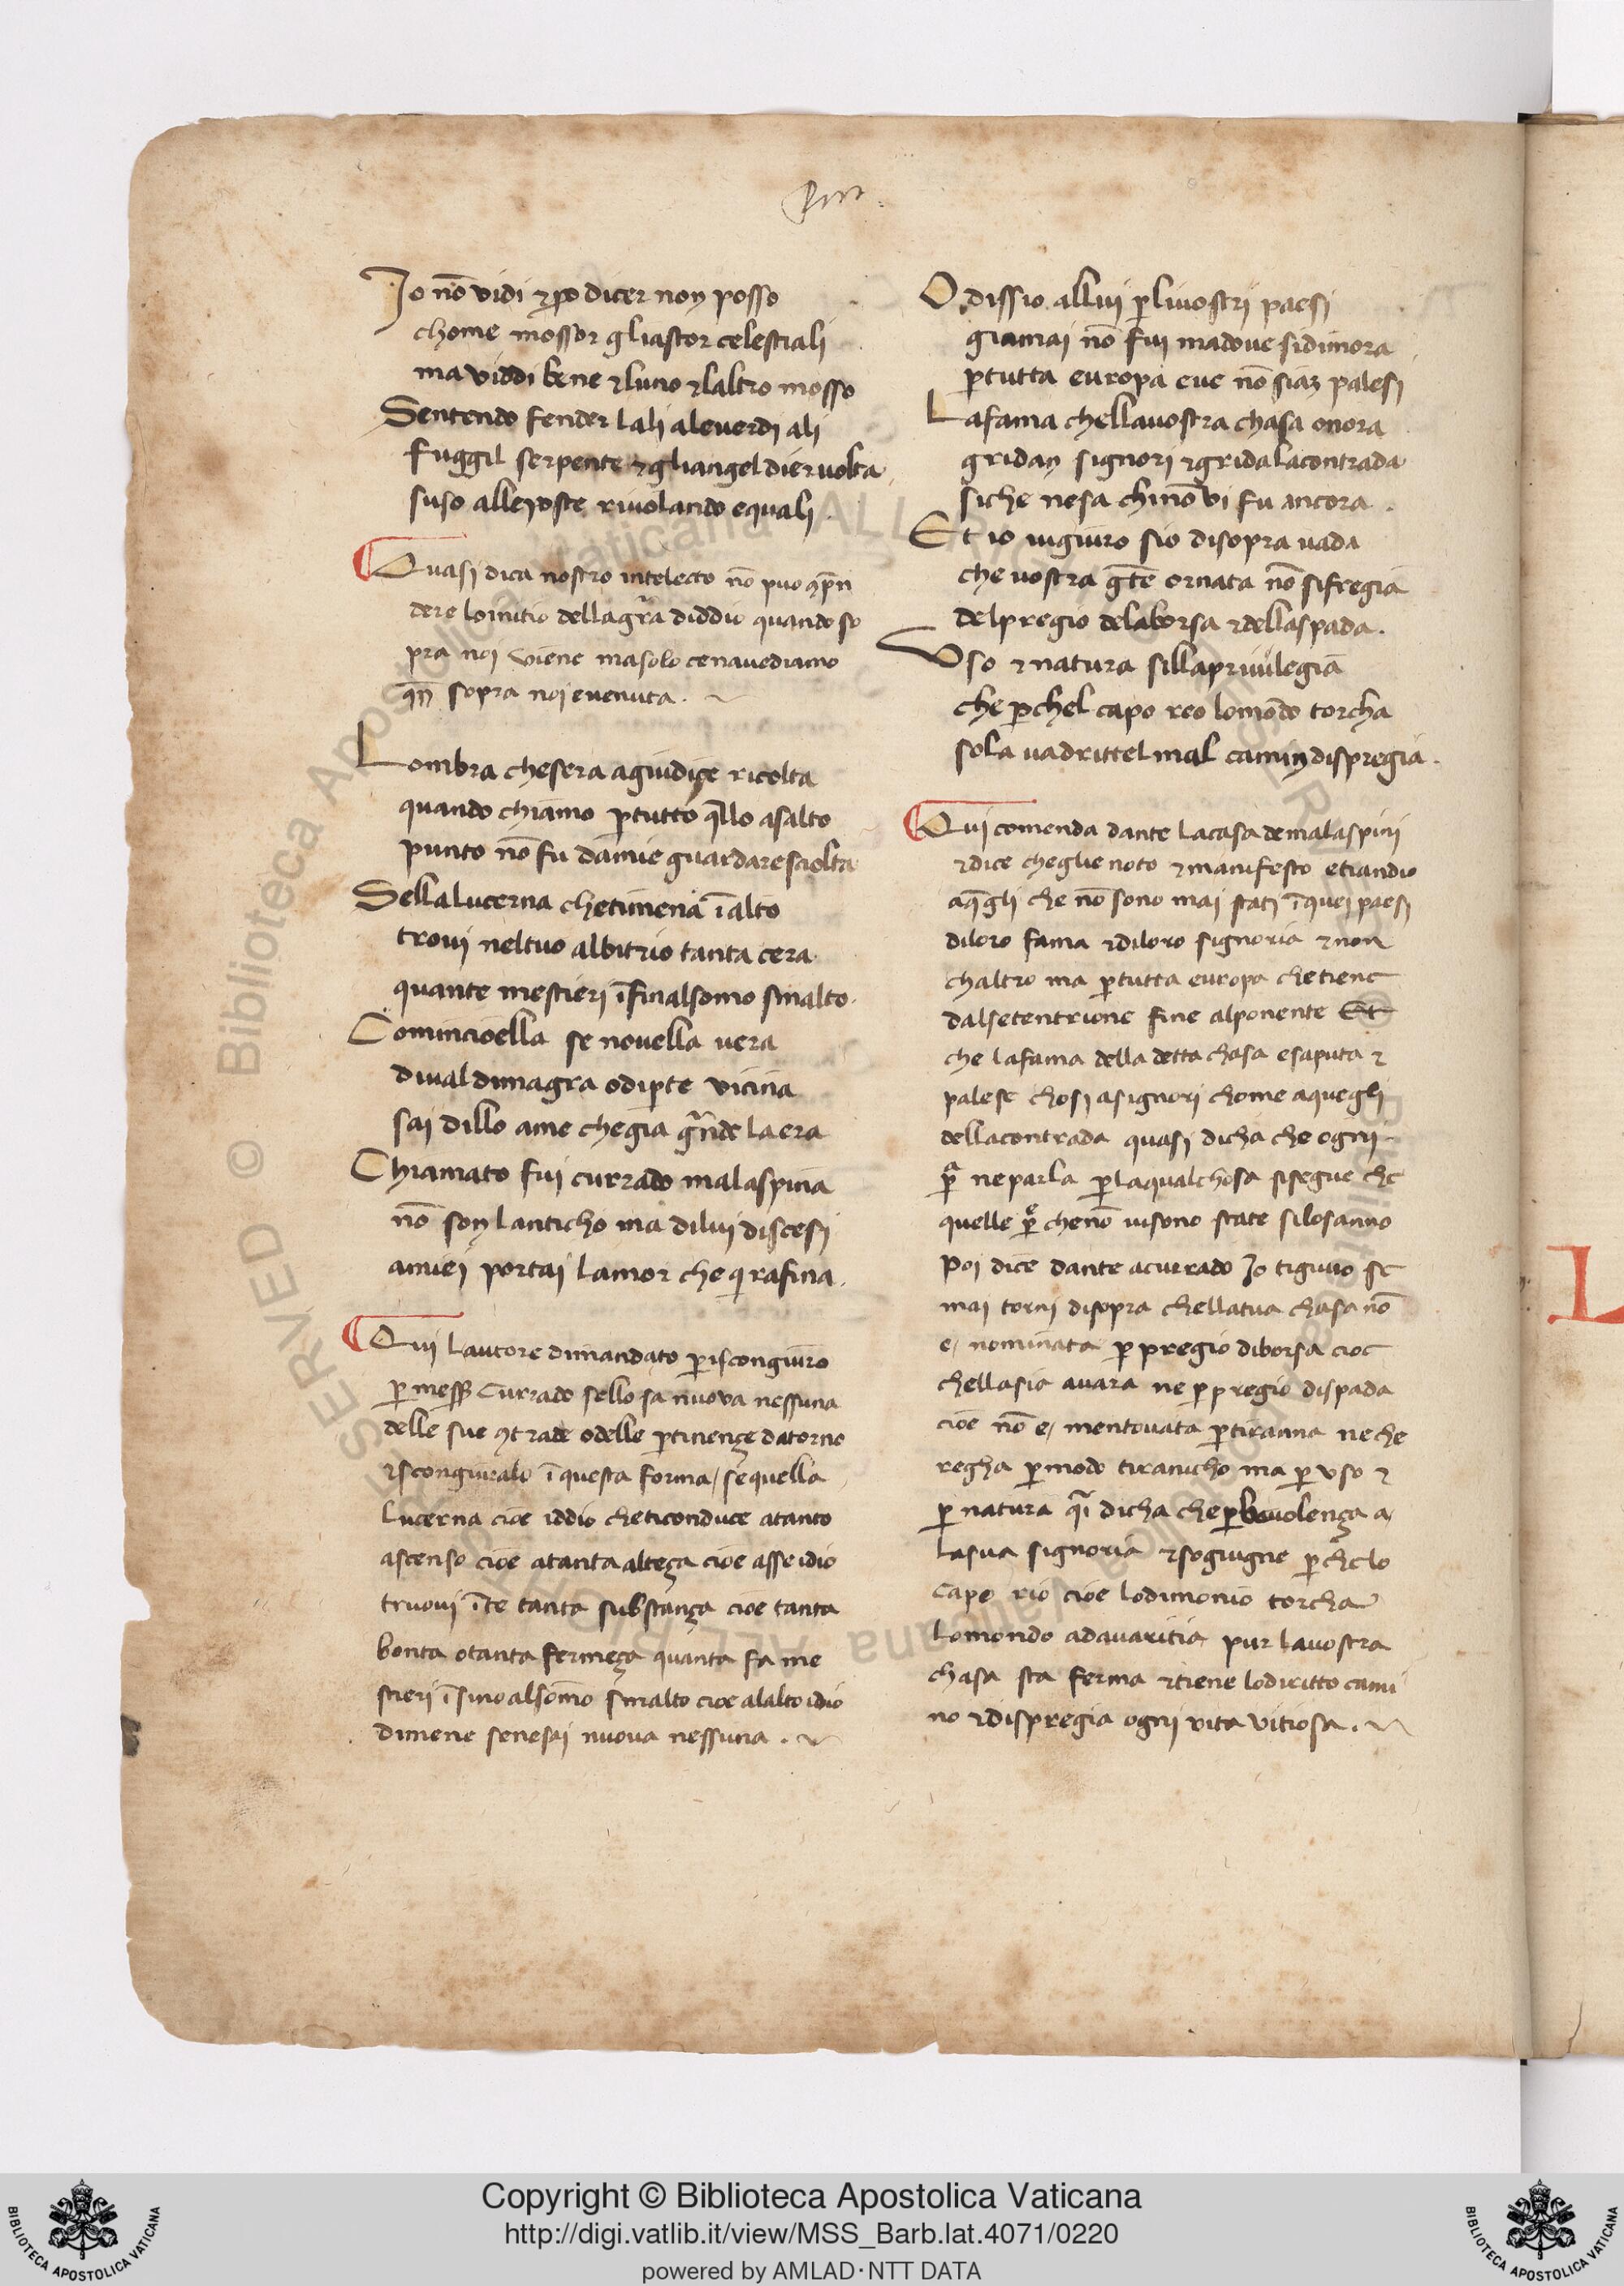 Io nō vidi ⁊ꝑo dicer non posso
chome mossor gliastor celestiali
ma viddi bene ⁊luno ⁊laltro mosso
Sentendo fender lali aleuerdi ali
fuggil serpente ⁊gliangel dier uolta
suso alleposte riuolando equali
Quasi dica nostro intelecto nō puo ꝯpn̄
dere loinitio dellagr̄a diddio quando so
pra noi viene masolo cenavediamo
qn̄ sopra noi euenuta.
Lombra chesera agiudiçe ricolta
quando chiamo ꝑtutto q̄llo asalto
punto nō fu damie guardare sciolta
Sellalucerna chetimena ī alto
troui neltuo albitrio tanta cera
quante mestieri īfinalsomo smalto.
Comincioella se nouella uera
diualdimagra odiꝑte vicina
sai dillo ame chegia gr̄nde laera
Chiamato fui currado malaspina
nō son lanticho ma dilui discesi
amiei portai lamor che qi rafina.
Qui lautore dimandato ꝑiscongiuro
ꝑ mess̄ Currado sello sa nuova nessuna
delle sue ꝯtrade odelle ꝑtinençe datorno
⁊scongiuralo ī questa forma / sequella
lucerna cioe iddio cheticonduce atanto
ascenso cioe atanta alteça cioe asse idio
truoui ī te tanta substança cioe tanta
bonta otanta fermeça quanta fa me
stieri ī sino alsomo smalto cioe alalto idio
dimene senesai nuoua nessuna.
O dissio allui ꝑliuostri paesi
giamai nō fui madoue sidimora
ꝑtutta europa eue nō sian palesi
Lafama chellauostra chasa onora
gridan signori ⁊gridalacontrada
siche nesa chinō vi fu ancora.
Et io uigiuro sio disopra uada
che uostra gēte ornata nō sifregia
delpregio delaborsa ⁊dellaspada.
Uso ⁊natura sillapriuilegia
che ꝑchel capo reo lomōdo torcha
sola uadrittel mal camin dispregia.
Qui comenda dante lacasa demalaspini
⁊dice cheglie noto ⁊manifesto etiandio
aq̄gli che nō sono mai stati ī quei paesi
diloro fama ⁊diloro signoria ⁊non
chaltro ma ꝑtutta europa chetiene
dalsetentrione fine alponente Et
che lafama della detta chasa esaputa ⁊
palese chosi asignori chome aquegli
dellacontrada quasi dicha che ogni
ꝑa neparla ꝑlaqualchosa sisegue che
quelle ꝑe chenō uisono state silosanno
Poi dice dante acurrado Io tigiuro se
mai torni disopra chellatua chasa nō
e, nominata ꝑ pregio diborsa cioe
chellasia auara ne ꝑ pregio dispada
cioe nō e, mentouata ꝑtiranna neche
regha ꝑmodo tiranicho ma ꝑ uso ⁊
ꝑ natura qi dicha che ꝑbeuolença a
lasua signoria ⁊sogiugne ꝑchelo
capo rio cioe lodimonio torcha
lomondo adauaritia pur lauostra
chasa sta ferma ⁊tiene lodiritto cami
no ⁊dispregia ogni vita vitiosa.
L
© Biblioteca Apostolica Vaticana ALL RIGHTS RESERVED
Copyright © Biblioteca Apostolica Vaticana
http://digi.vatlib.it/view/MSS_Barb.lat.4071/0220
powered by AMLAD·NTT DATA
BIBLIOTECA APOSTOLICA VATICANA
BIBLIOTECA APOSTOLICA VATICANA